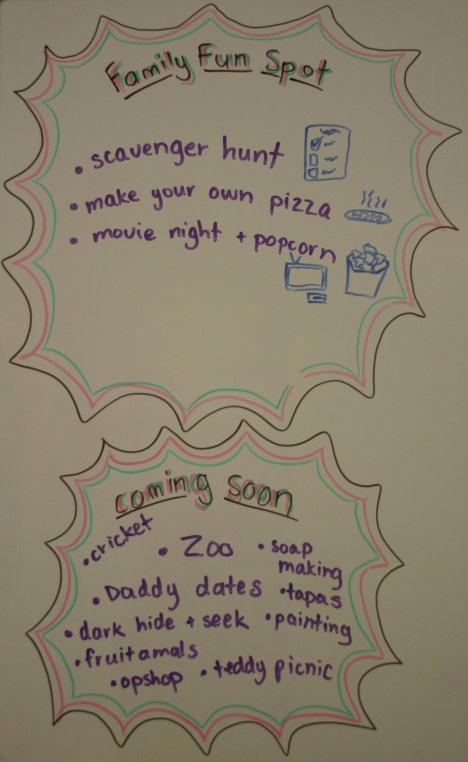 Family Fun Spot
• scavenger hunt
• make your own pizza
• movie night + popcorn
coming soon
• cricket
• Zoo
• soap making
• Daddy dates
• tapas
• dark hide + seek
• painting
• fruitamals
• opshop
• teddy picnic